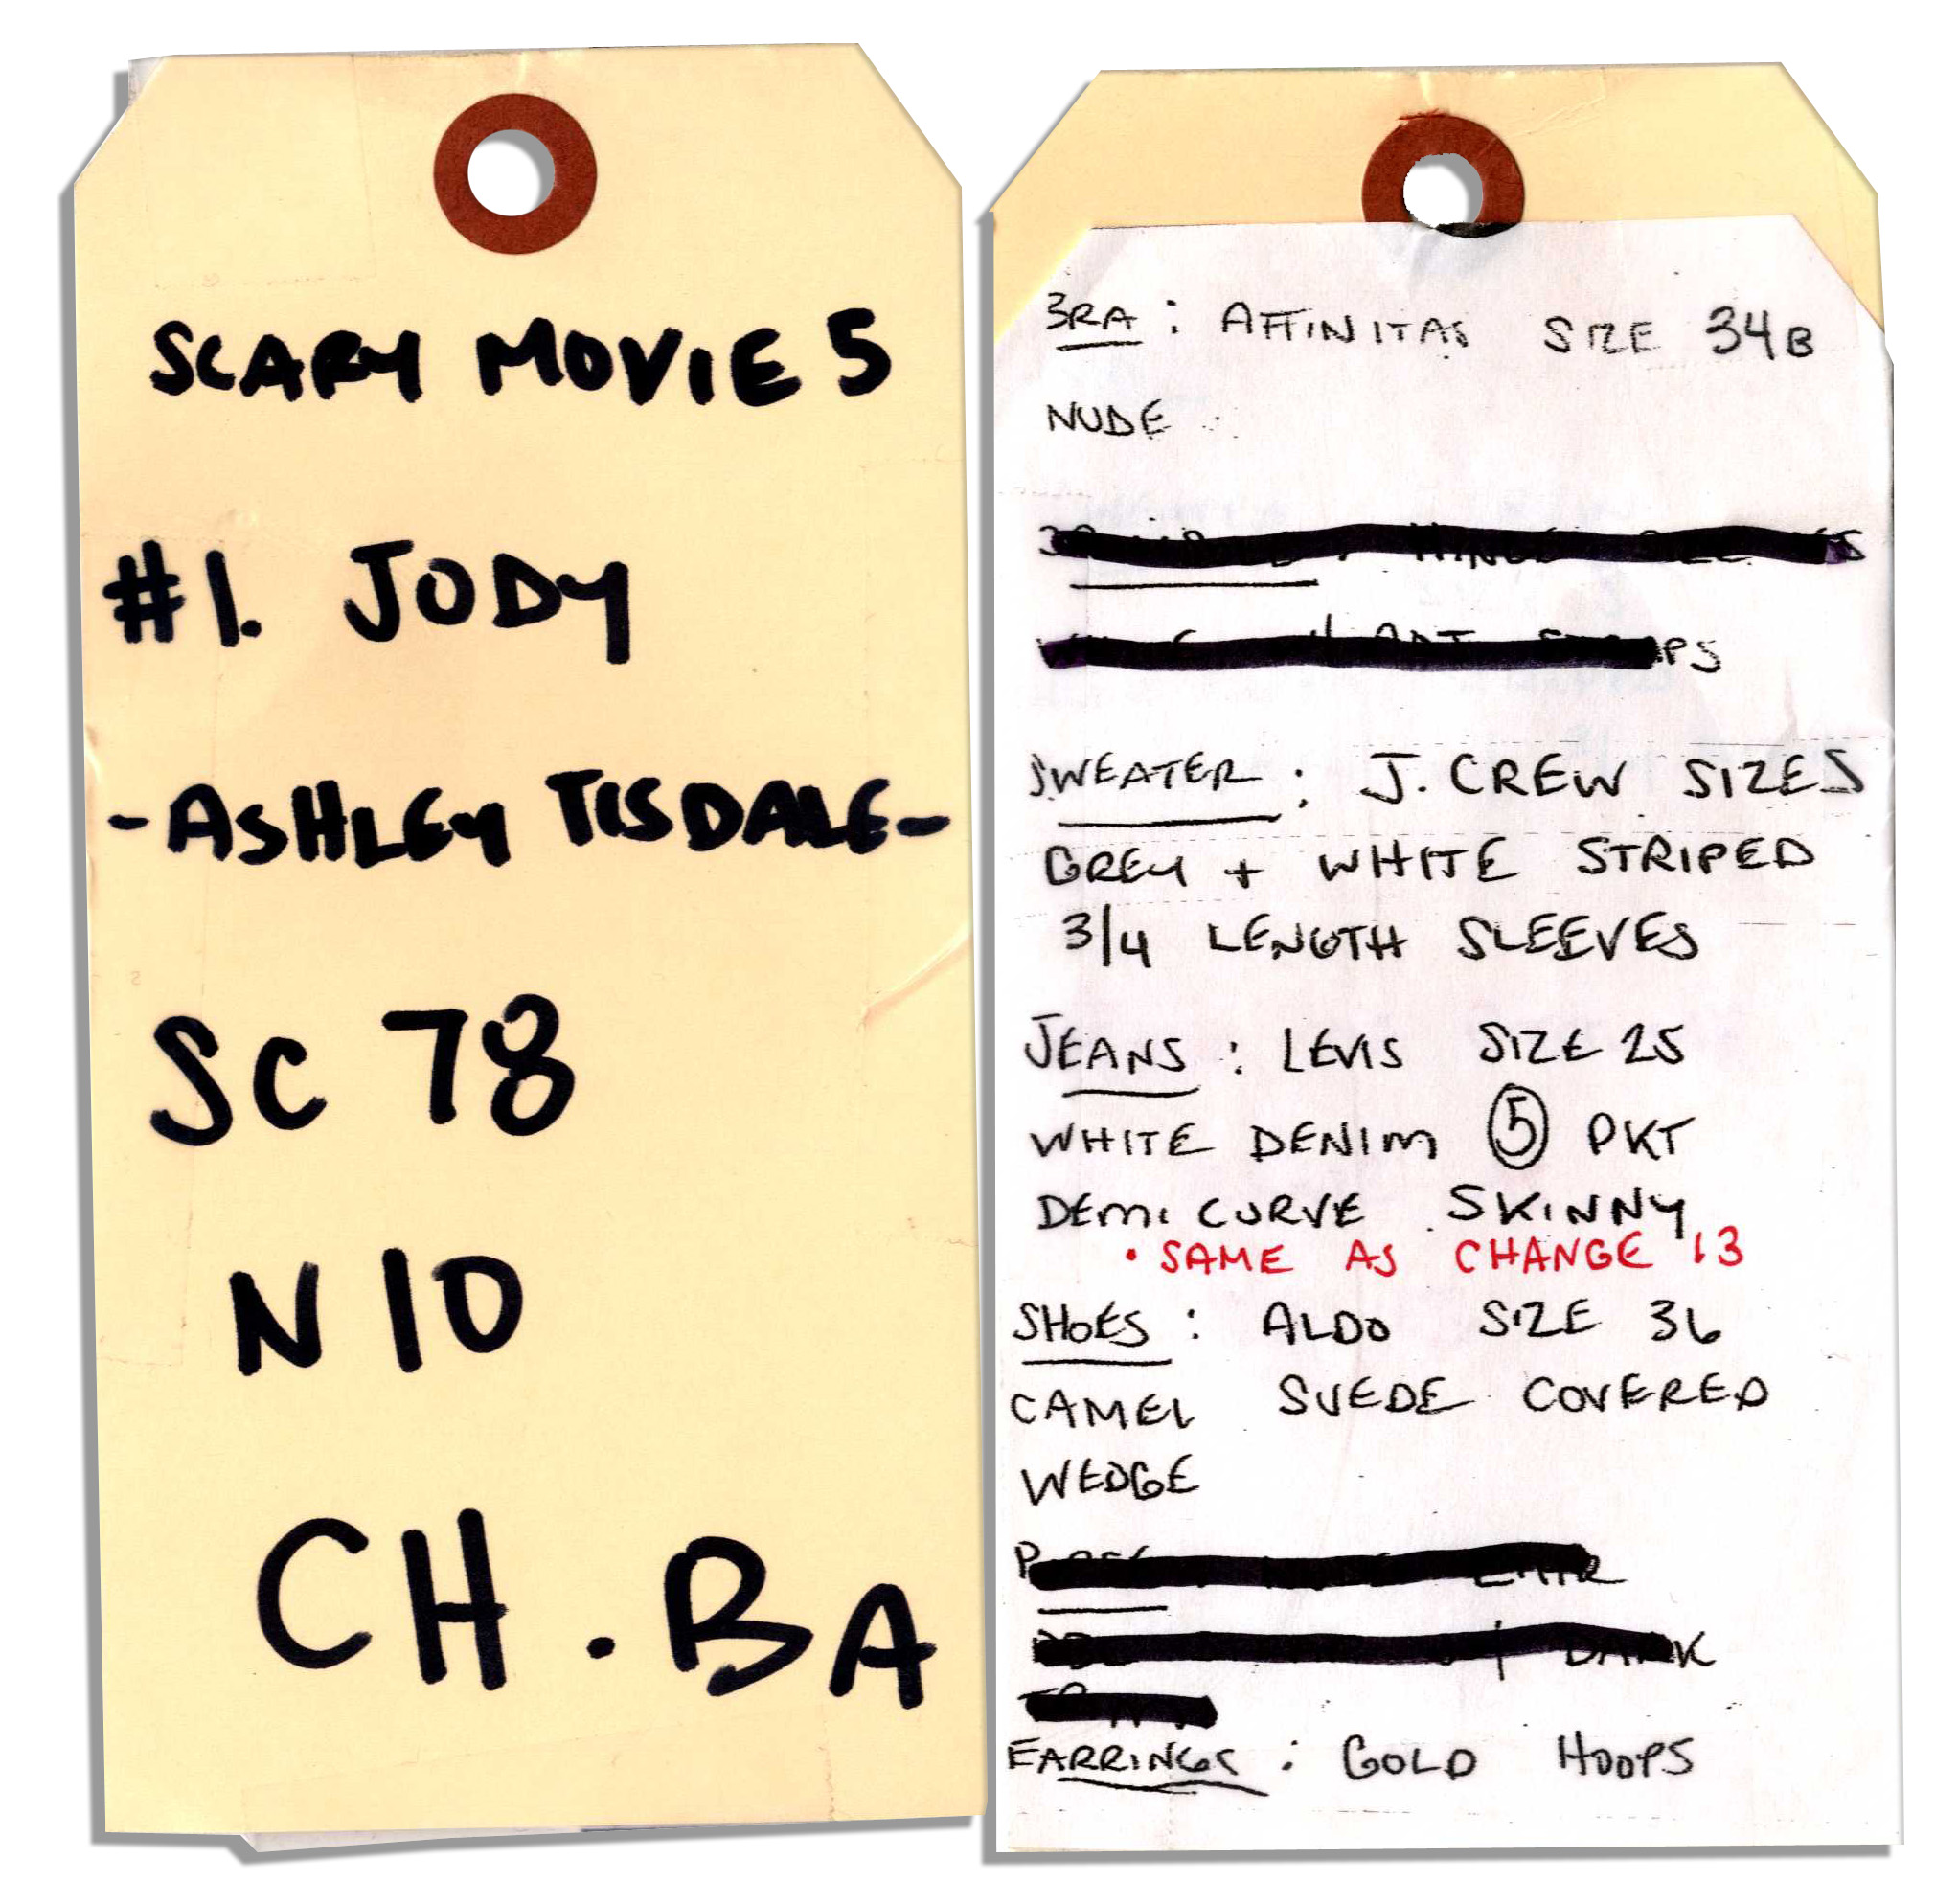 SCARY MOVIE 5
#1. JODY
-ASHLEY TISDALE-
SC 78
N 10
CH. BA
BRA: AFFINITAS SIZE 34B
NUDE
SWEATER: J. CREW SIZE S
GREY + WHITE STRIPED
3/4 LENGTH SLEEVES
JEANS: LEVIS SIZE 25
WHITE DENIM 5 PKT
DEMI CURVE SKINNY
• SAME AS CHANGE 13
SHOES: ALDO SIZE 36
CAMEL SUEDE COVERED
WEDGE
DARK
EARRINGS: GOLD HOOPS